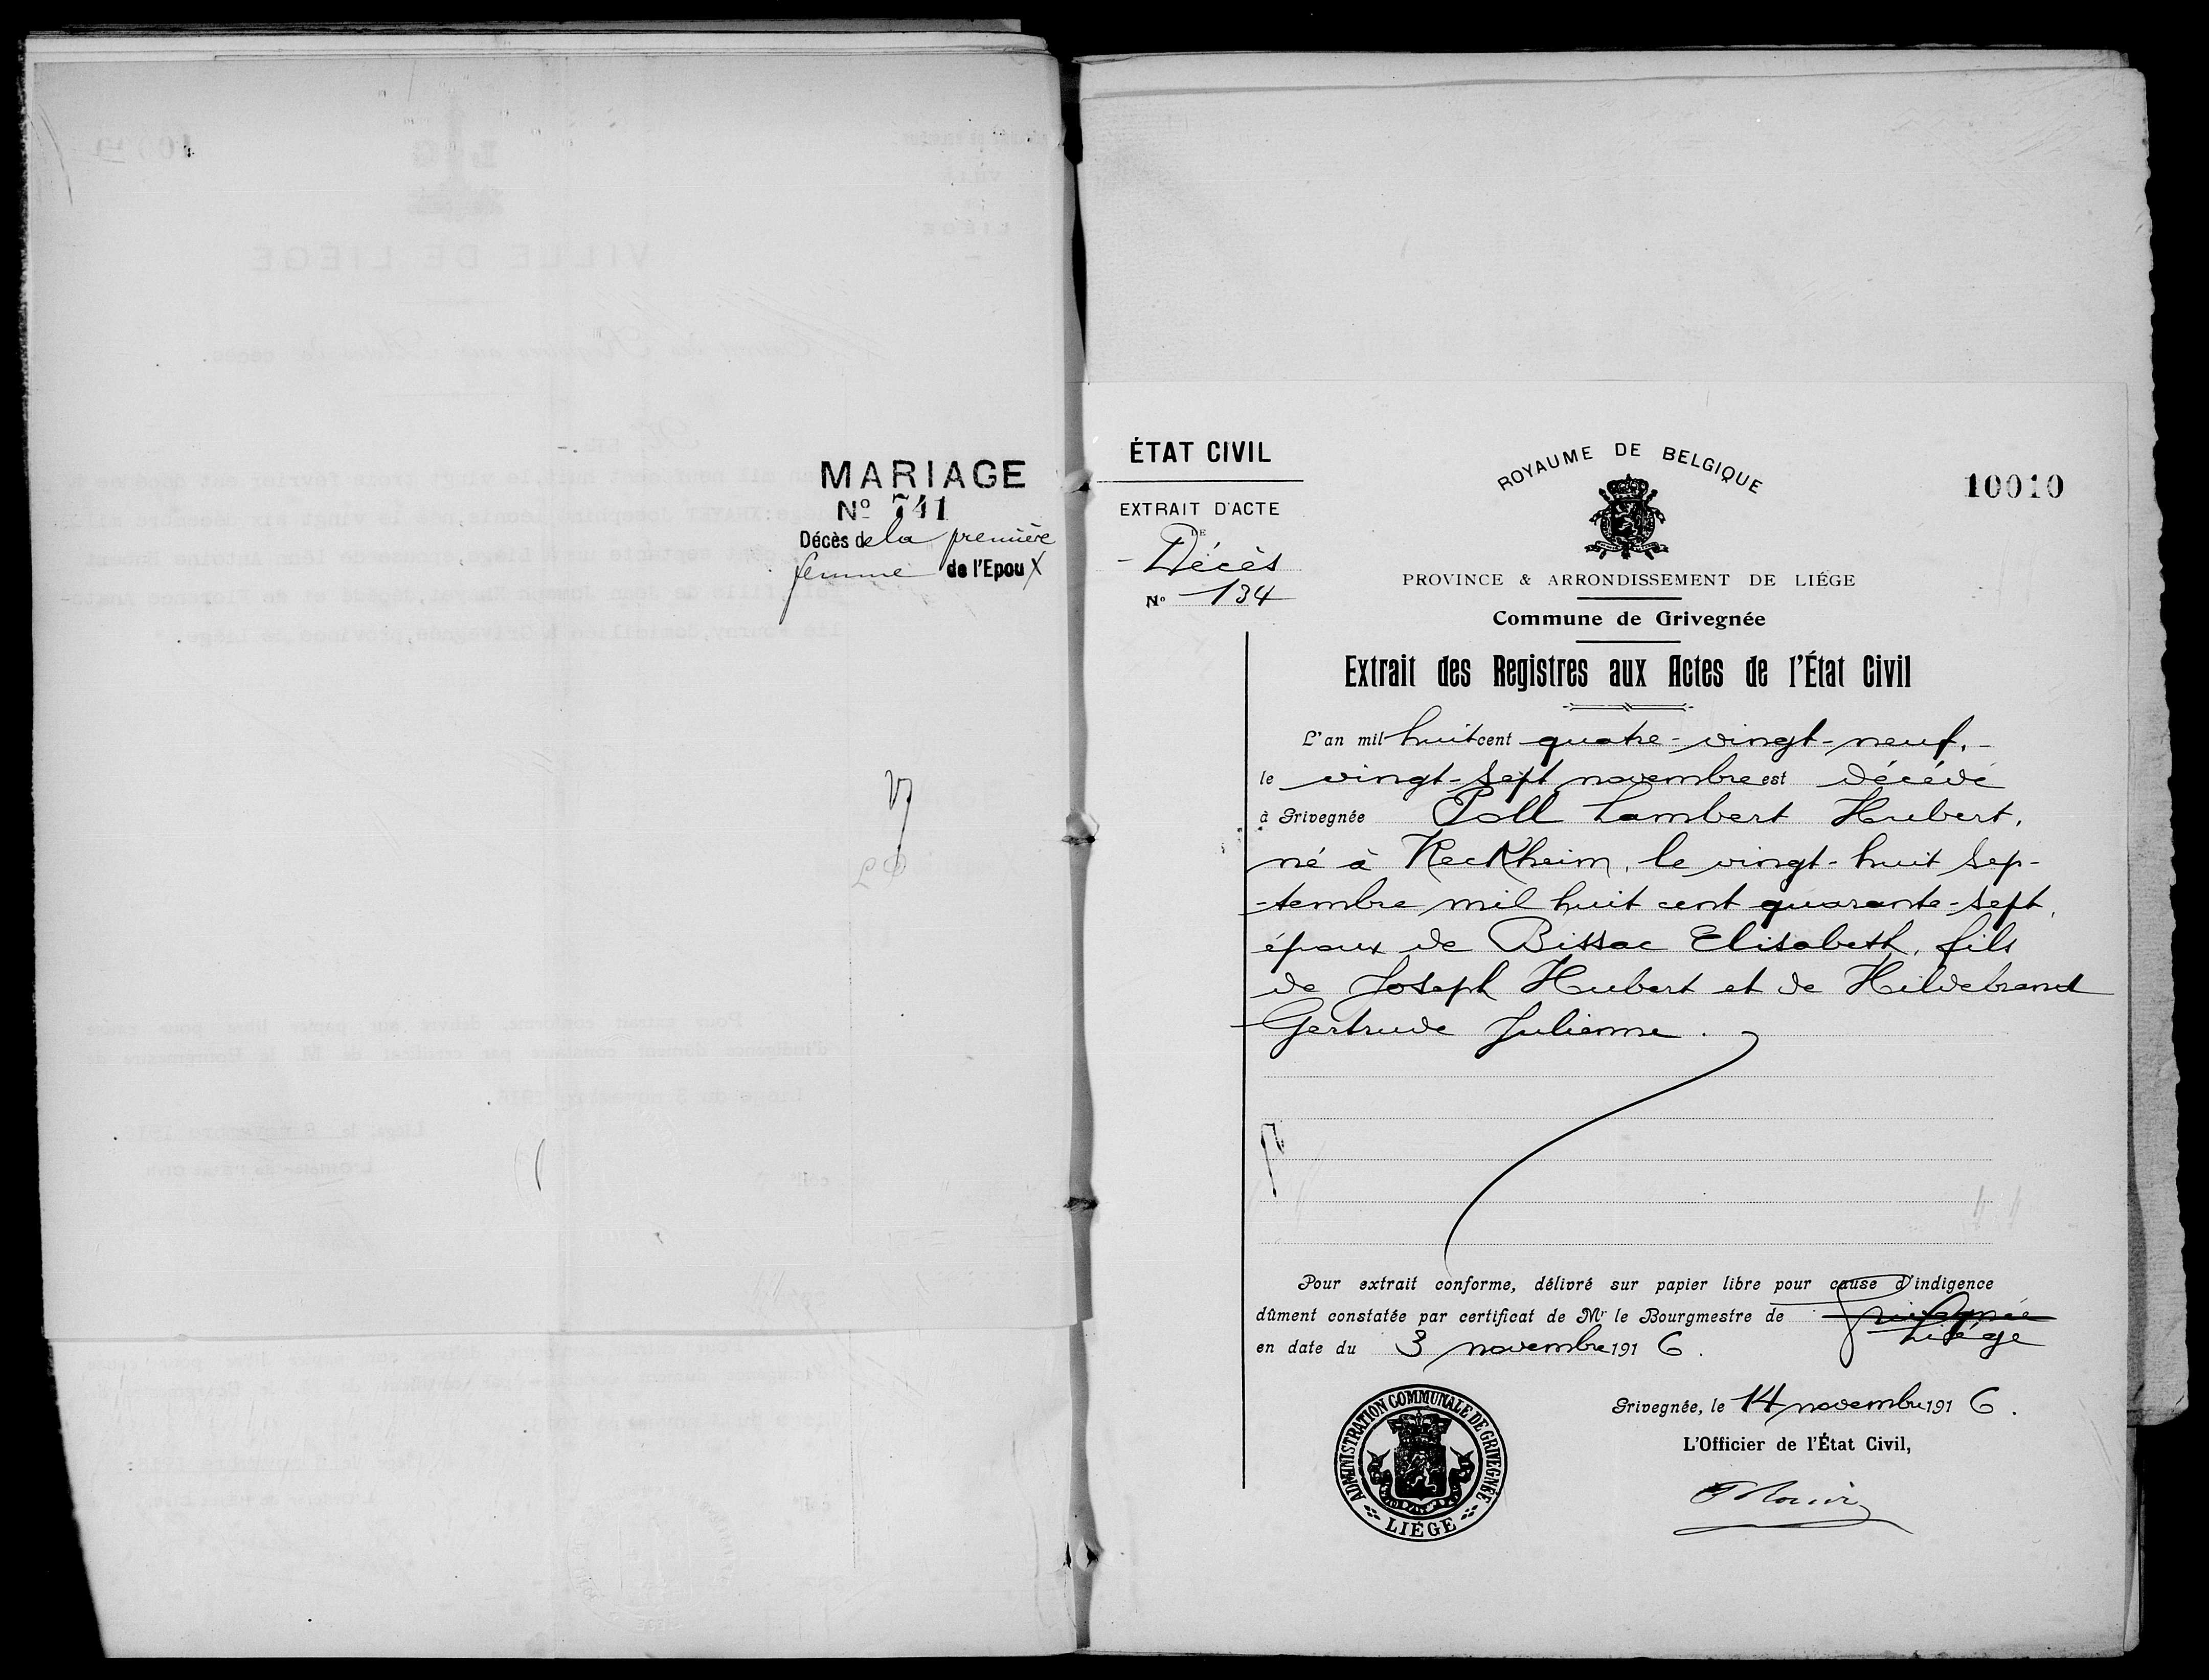 MARIAGE
Nº 741
Décès de la première
femme de l'Epoux
ÉTAT CIVIL
EXTRAIT D'ACTE
DE
Décès
Nº 134
ROYAUME DE BELGIQUE
10010
PROVINCE & ARRONDISSEMENT DE LIÉGE
Commune de Grivegnée
Extrait des Registres aux Actes de l'État Civil
L'an mil huit cent quatre-vingt-neuf,
le vingt-sept novembre est décédé
à Grivegnée Poll Lambert Hubert,
né à Reckheim, le vingt-huit sep-
-tembre mil huit cent quarante-sept,
époux de Bissac Elisabeth, fils
de Joseph Hubert et de Hildebrand
Gertrude Julienne.
Pour extrait conforme, délivré sur papier libre pour cause d'indigence
dûment constatée par certificat de Mr le Bourgmestre de Grivegnée
Liége
en date du 3 novembre 1916.
Grivegnée, le 14 novembre 1916.
L'Officier de l'État Civil,
ADMINISTRATION COMMUNALE DE GRIVEGNÉE
LIÉGE